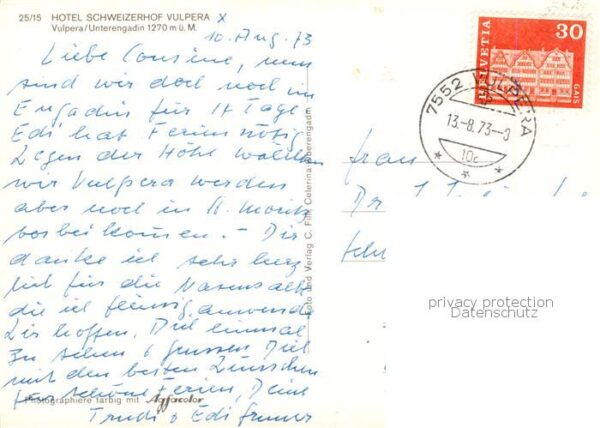 25/15 HOTEL SCHWEIZERHOF VULPERA x
Vulpera/Unterengadin 1270 m ü. M.
10. Aug. 73
Liebe Cousine, nun
sind wir doch noch im
Engadin für 14 Tage
Edi hat Ferien nötig
Wegen der Höhe wählten
wir Vulpera werden
aber noch in St. Moritz
vorbei kommen. - Dir
danke ich sehr herz
lich für die Nasensalbe
die ich fleissig anwende
Wir hoffen, Dich einmal
zu sehen & grüssen Dich
mit den besten Wünschen
für schöne Ferien, Deine
Trudi & Edi
Photographiere farbig mit Agfacolor
Foto und Verlag C. Filli, Celerina/Oberengadin
HELVETIA
30
GAIS
7552 VULPERA
13.-8.73-
10c
Frau
Dr
privacy protection
Datenschutz